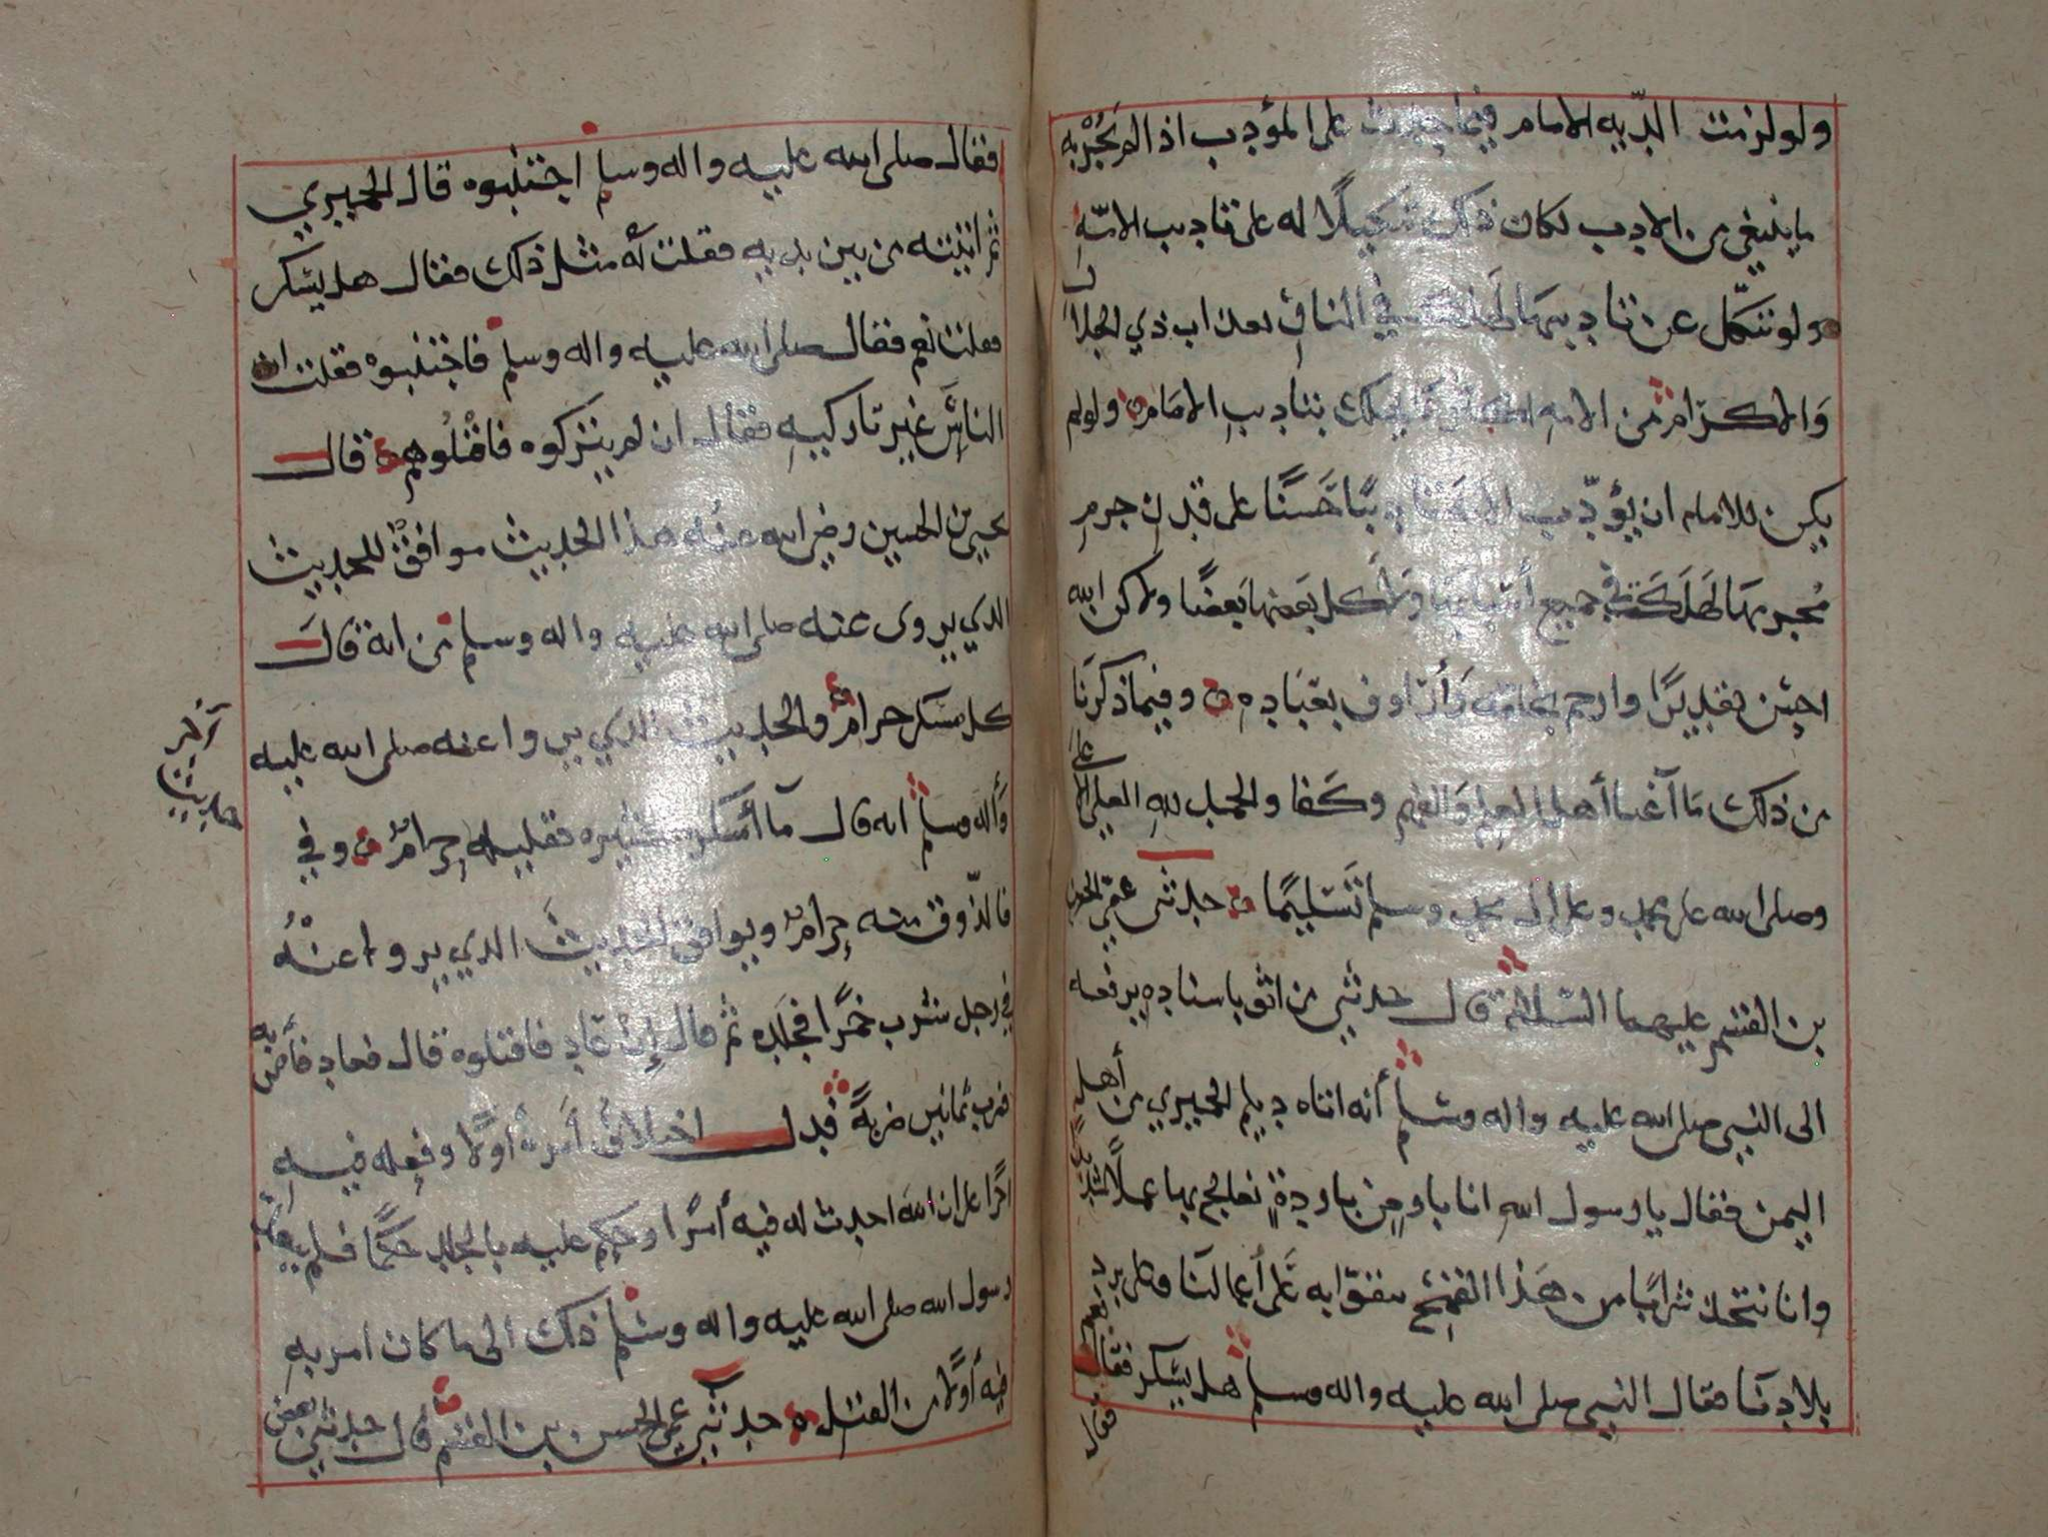 ولو لزمت الدية الامام فيما حدث على المؤدب اذا لم يجز به
ما ينبغي من الادب لكان ذلك تنكيلًا له على تاديب الامة
ولو تنكّل عن تاديبها لهلكت في التاق بعذاب ذي الجلال
والاكرام من الامه اكثر من يهلك بتاديب الامام ولو لم
يكن للامام ان يؤدّب الامة تاديبًا حَسَنًا على قدر جرم
مجرمها لهَلَكَت في جميع أسبابها وَلأكل بعضها بَعضًا ولاكن الله
احسَن تقديرًا وارحم بخلقه وَأرَاوف بعبَاده وفيما ذكرنَا
من ذلك مَا أغنا أهل العلم وَالفهم وكَفا والحمد للهِ العلي الاعلى
وصلى الله على محمد وعلى ال محمد وسلم تَسْليمًا حدثني عمي الحسن
بن القسم عليهما السّلام قال حدثني من اثق باسناده يرفعه
الى النبي صلى الله عليه واله وسلم أنه اتاه ديلم الحميري من أهل
اليمن فقال يا رسول الله انا بارضٍ باردةٍ نعالج بها عملًا شديدًا
وانا نتخذ شرابًا من هَذا القمح نتقوّا به عَلى أعمالنَا وعلى برد
بلادنَا فقال النبي صلى الله عليه واله وسلم هل يسكر فقال نعم
فقال
فقال صلى الله عليه واله وسلم اجتنبوه قال الحميري
ثم اتيته من بين يديه فقلت لهُ مثل ذلك فقال هل يسكر
فقلت نعم فقال صلى الله عليه واله وسلم فاجتنبوهُ فقلت ان
الناسَ غير تاركيهِ فقال ان لم يتركوه فاقتلُوهم قال
يحيى بن الحسين رضي الله عنه هذا الحديث موافقٌ للحديث
الذي يروى عنه صلى الله عليه واله وسلم من انه قال
كل مسكر حرامٌ والحديث الذي يروا عنه صلى الله عليه
وَأله وسلم انه قال مآ أسكر كثيره فقليله حرامٌ وفي
فالذّوق منه حرامٌ ويوافق الحديثَ الذي يروا عنْهُ
في رجل شرب خمرًا فجلده ثم قال إن عَاد فاقتلوه قال فعاد فأمر به
فضرب ثمانين ضربةً فدل اختلافُ أمره أولًا وفعله فيه
اخرًا على ان اللهَ احدث له فيه أمرًا وحكم عليه بالجلد حكمًا فلم
رسول الله صلى الله عليه واله وسلم ذلك الى ما كان امر به
فيه أولًا من القتل حدثني عمي الحسن بن القسم قال حدثني بعض
آخر
حديث